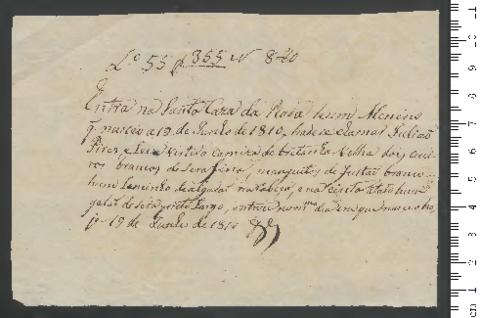 Lº 55 f 355 Nº 840
Entra na Santa Caza da Roda hum Menino
q. naseo a 19 de Junho de 1810, hade se chamar Julião
Pires, e leva vistido camiza de bretanha velha dois cuei
ros brancos de serafina, manguitos de fustão branco
hum Lencinho de na cabeça, e na cinta atado hum
galão de seda preto Largo, entrou no m.mo dia em que naseo ho
je 19 de Junho de 1810